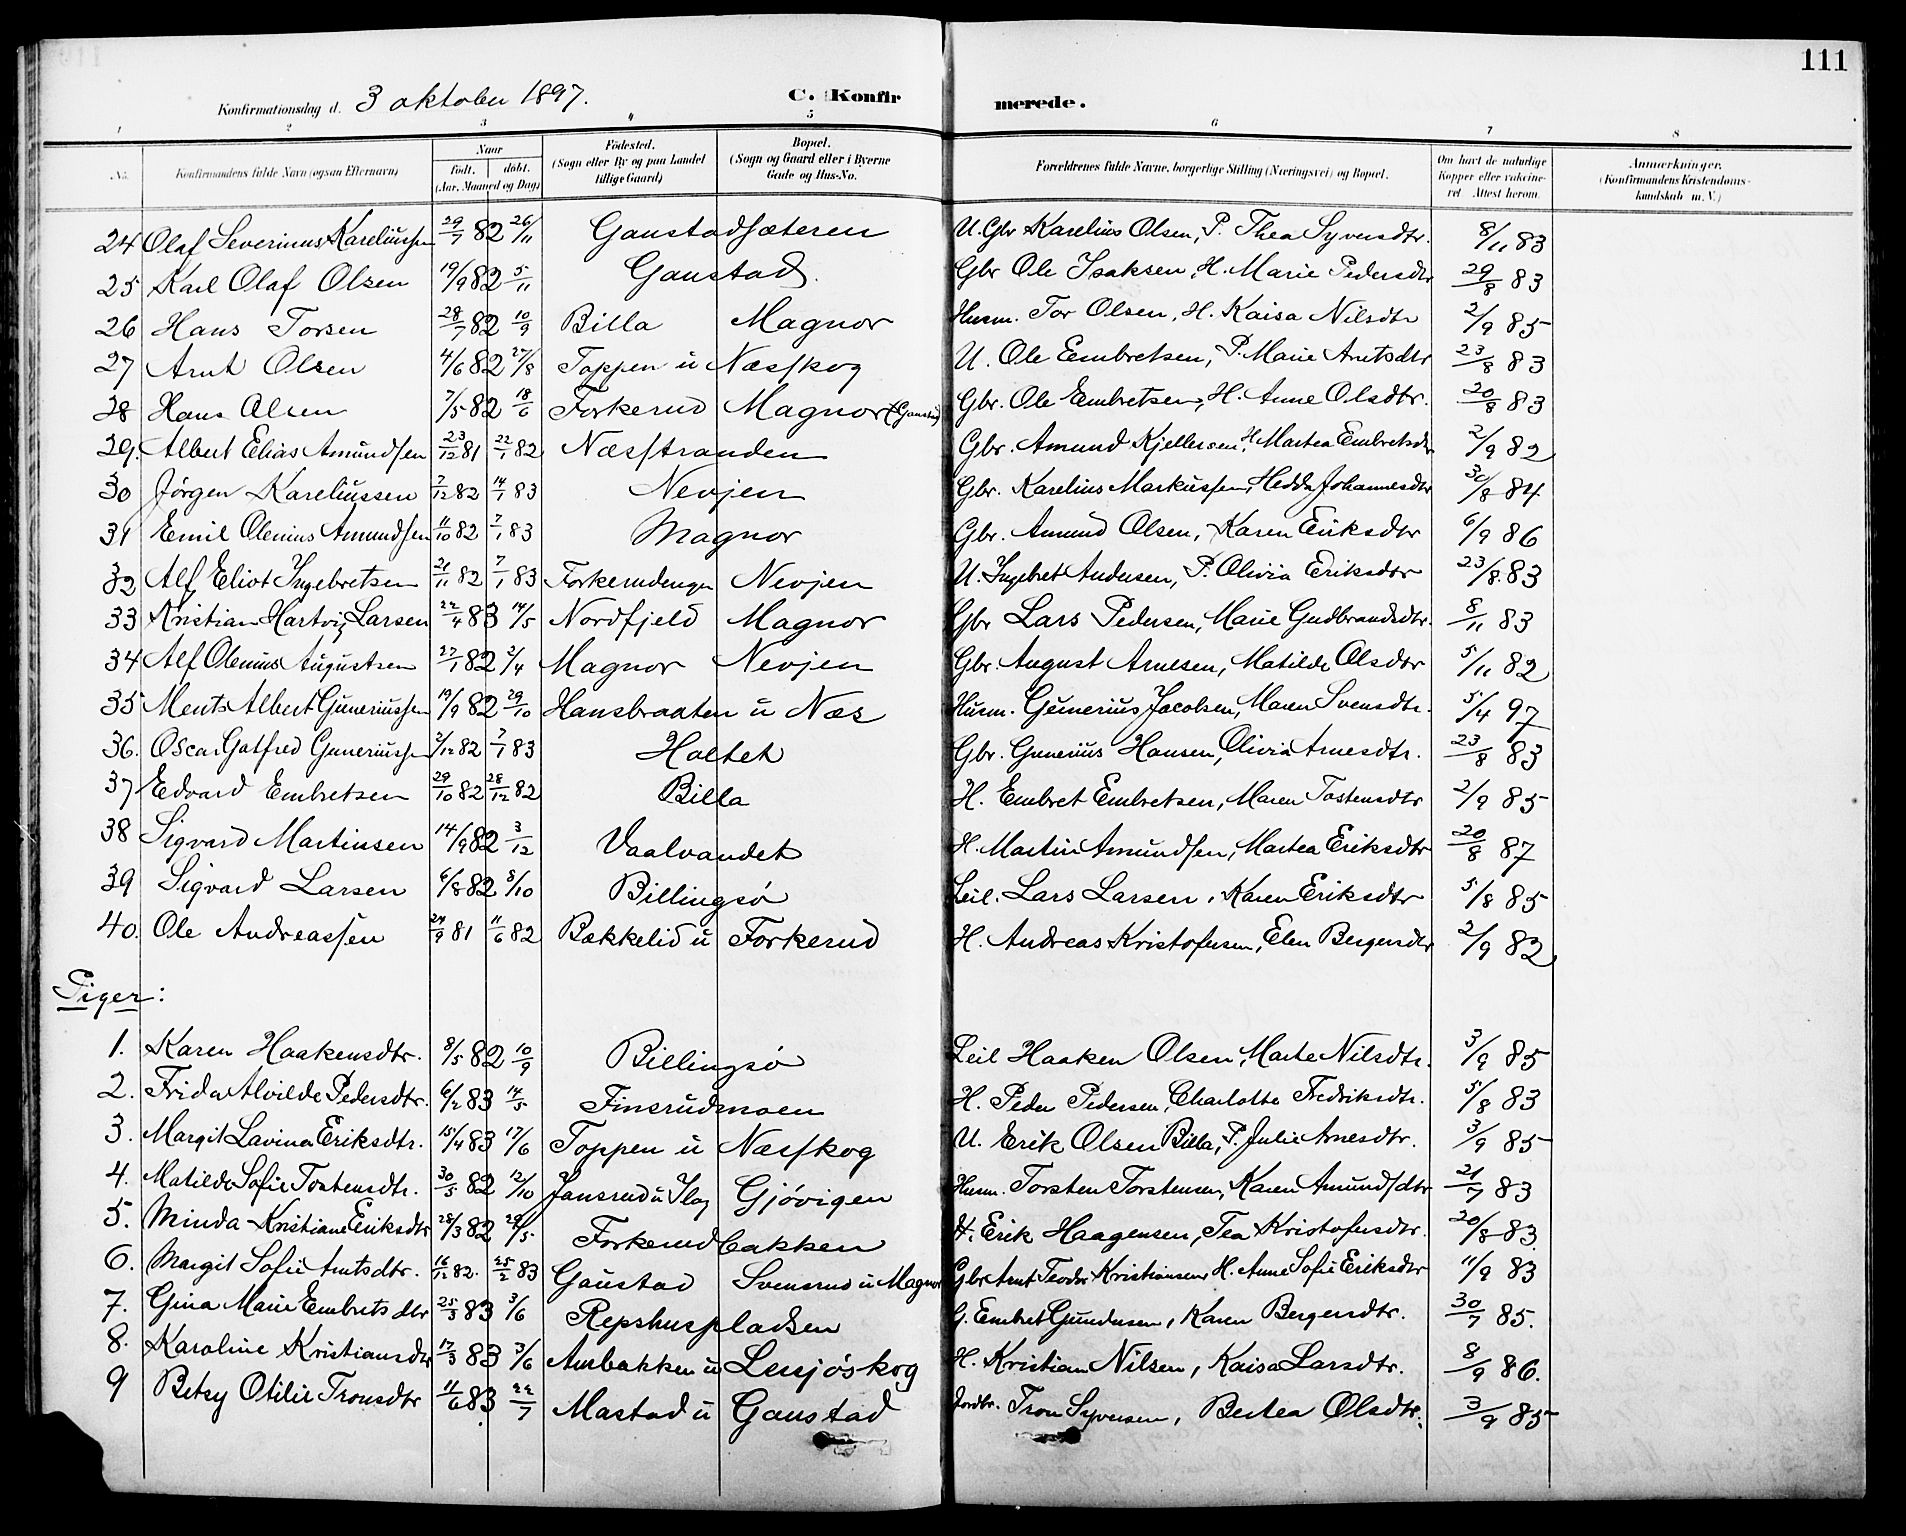 111
Konfirmationsdag d. 3 oktober 1897. C. Konfirmerede.
1 2 3 4 5 6 7 8
No. Konfirmandens fulde Navn (ogsaa Efternavn) Naar födt. döbt. (Aar, Maaned og Dag) Födested. (Sogn eller By og paa Landet tillige Gaard) Bopæl. (Sogn og Gaard eller i Byerne Gade og Hus-No. Forældrenes fulde Navne, borgerlige Stilling (Næringsvei) og Bopæl. Om havt de naturlige Kopper eller vaccineret. Attest herom. Anmærkninger. (Konfirmandens Kristendomskundskab m. V.)
24 Olaf Severinus Kareliussen 29/7 82 26/11 Gaustadsæteren U. Gbr Karelius Olsen, P. Thea Syversdtr. 8/11 83
25 Karl Olaf Olsen 19/9 82 5/11 Gaustad. Gbr Ole Isaksen, H. Marie Pedersdtr 29/8 83
26 Hans Torsen 28/7 82 10/9 Billa Magnor Husm. Tor Olsen, H. Kaisa Nilsdtr 2/9 85
27 Arnt Olsen 4/6 82 27/8 Toppen u Næsskog U. Ole Embretsen, P. Marie Arntsdtr 23/8 83
28 Hans Olsen 7/5 82 18/6 Forkerud Magnor (Gaustad) Gbr. Ole Embretsen, H. Anne Olsdtr. 20/8 83
29. Albert Elias Amundsen 23/12 81 22/1 82 Næsstranden Gbr. Amund Kjellersen, H. Martea Embretsdtr 2/9 82
30 Jörgen Kareliussen 7/12 82 14/1 83 Nevjen Gbr. Karelius Markussen, Hedda Johannesdtr 30/8 84
31 Emil Olenius Amundsen 11/10 82 7/1 83 Magnor Gbr. Amund Olsen, Karen Eriksdtr 6/9 86
32 Alf Eliot Ingebretsen 21/11 82 7/1 83 Forkerudengen Nevjen U. Ingebret Andersen, P. Olivia Eriksdtr 23/8. 83
33 Kristian Hartvig Larsen 22/4 83 14/5 Nordfjeld Magnor Gbr Lars Pedersen, Marie Gudbrandsdtr. 8/11 83
34 Alf Olenius Augustsen 27/1 82 2/4 Magnor Nevjen Gbr August Arnesen, Matilde Olsdtr 5/11 82
35 Ments Albert Guneriussen 19/9 82 29/10 Hansbraaten u Næs Husm. Gunerius Jacobsen, Maren Svensdtr. 5/4 97
36. Oscar Gotfred Guneriussen 2/12 82 7/1 83 Holtet Gbr. Gunerius Hansen, Olivia Arnesdtr. 23/8 83
37 Edvard Embretsen 29/10 82 28/12 82 Billa H. Embret Embretsen, Maren Tostensdtr 2/9 85
38 Sigvard Martinsen 14/9 82 3/12 Vaalvandet H. Martin Amundsen, Martea Eriksdtr 20/8 87
39 Sigvard Larsen 6/8 82 8/10 Billingsö Leil. Lars Larsen, Karen Eriksdtr 5/8 85
40. Ole Andreassen 24/9 81 11/6 82 Bækkelid u Forkerud H. Andreas Kristofersen, Elen Bergersdtr 2/9 82
Piger:
1. Karen Haakensdtr. 8/5 82 10/9 Billingsö Leil Haaken Olsen, Marte Nilsdtr. 3/9 85
2. Frida Alvilde Pedersdtr. 6/2 83 14/5 Finsrudmoen H. Peder Pedersen, Charlotte Fredriksdtr. 5/8 83
3. Margit Lavina Eriksdtr. 15/4 83 17/6 Toppen u Næsskog U. Erik Olsen Billa, P. Julie Arnesdtr. 3/9 85
4. Matilde Sofie Tostensdtr. 30/5 82 12/10 Jansrud u Gjövigen Husm. Torsten Torstensen, Karen Amundsdtr 21/7 83
5. Minda Kristiane Eriksdtr 28/3 82 29/5 Forkerudbakken H. Erik Haagensen, Tea Kristofersdtr. 20/8 83
6. Margit Sofie Arntsdtr. 16/12 82. 25/2 83 Gaustad Svensrud u Magnor Gbr Arnt Teodor Kristiansen H. Anne Sofie Eriksdtr 11/9 83
7. Gina Marie Embretsdtr 25/3 83 3/6 Repshuspladsen G. Embret Gundersen, Karen Bergersdtr. 30/7 85.
8. Karoline Kristiansdtr 17/3 83 3/6 Aurbakken u Lersjöskog H. Kristian Nilsen, Kaisa Larsdtr. 8/9 86.
9 Betsy Otilie Tronsdtr 11/6 83 22/7 Mastad u Gaustad Jordbr. Tron Syversen, Bertea Olsdtr. 3/9 85